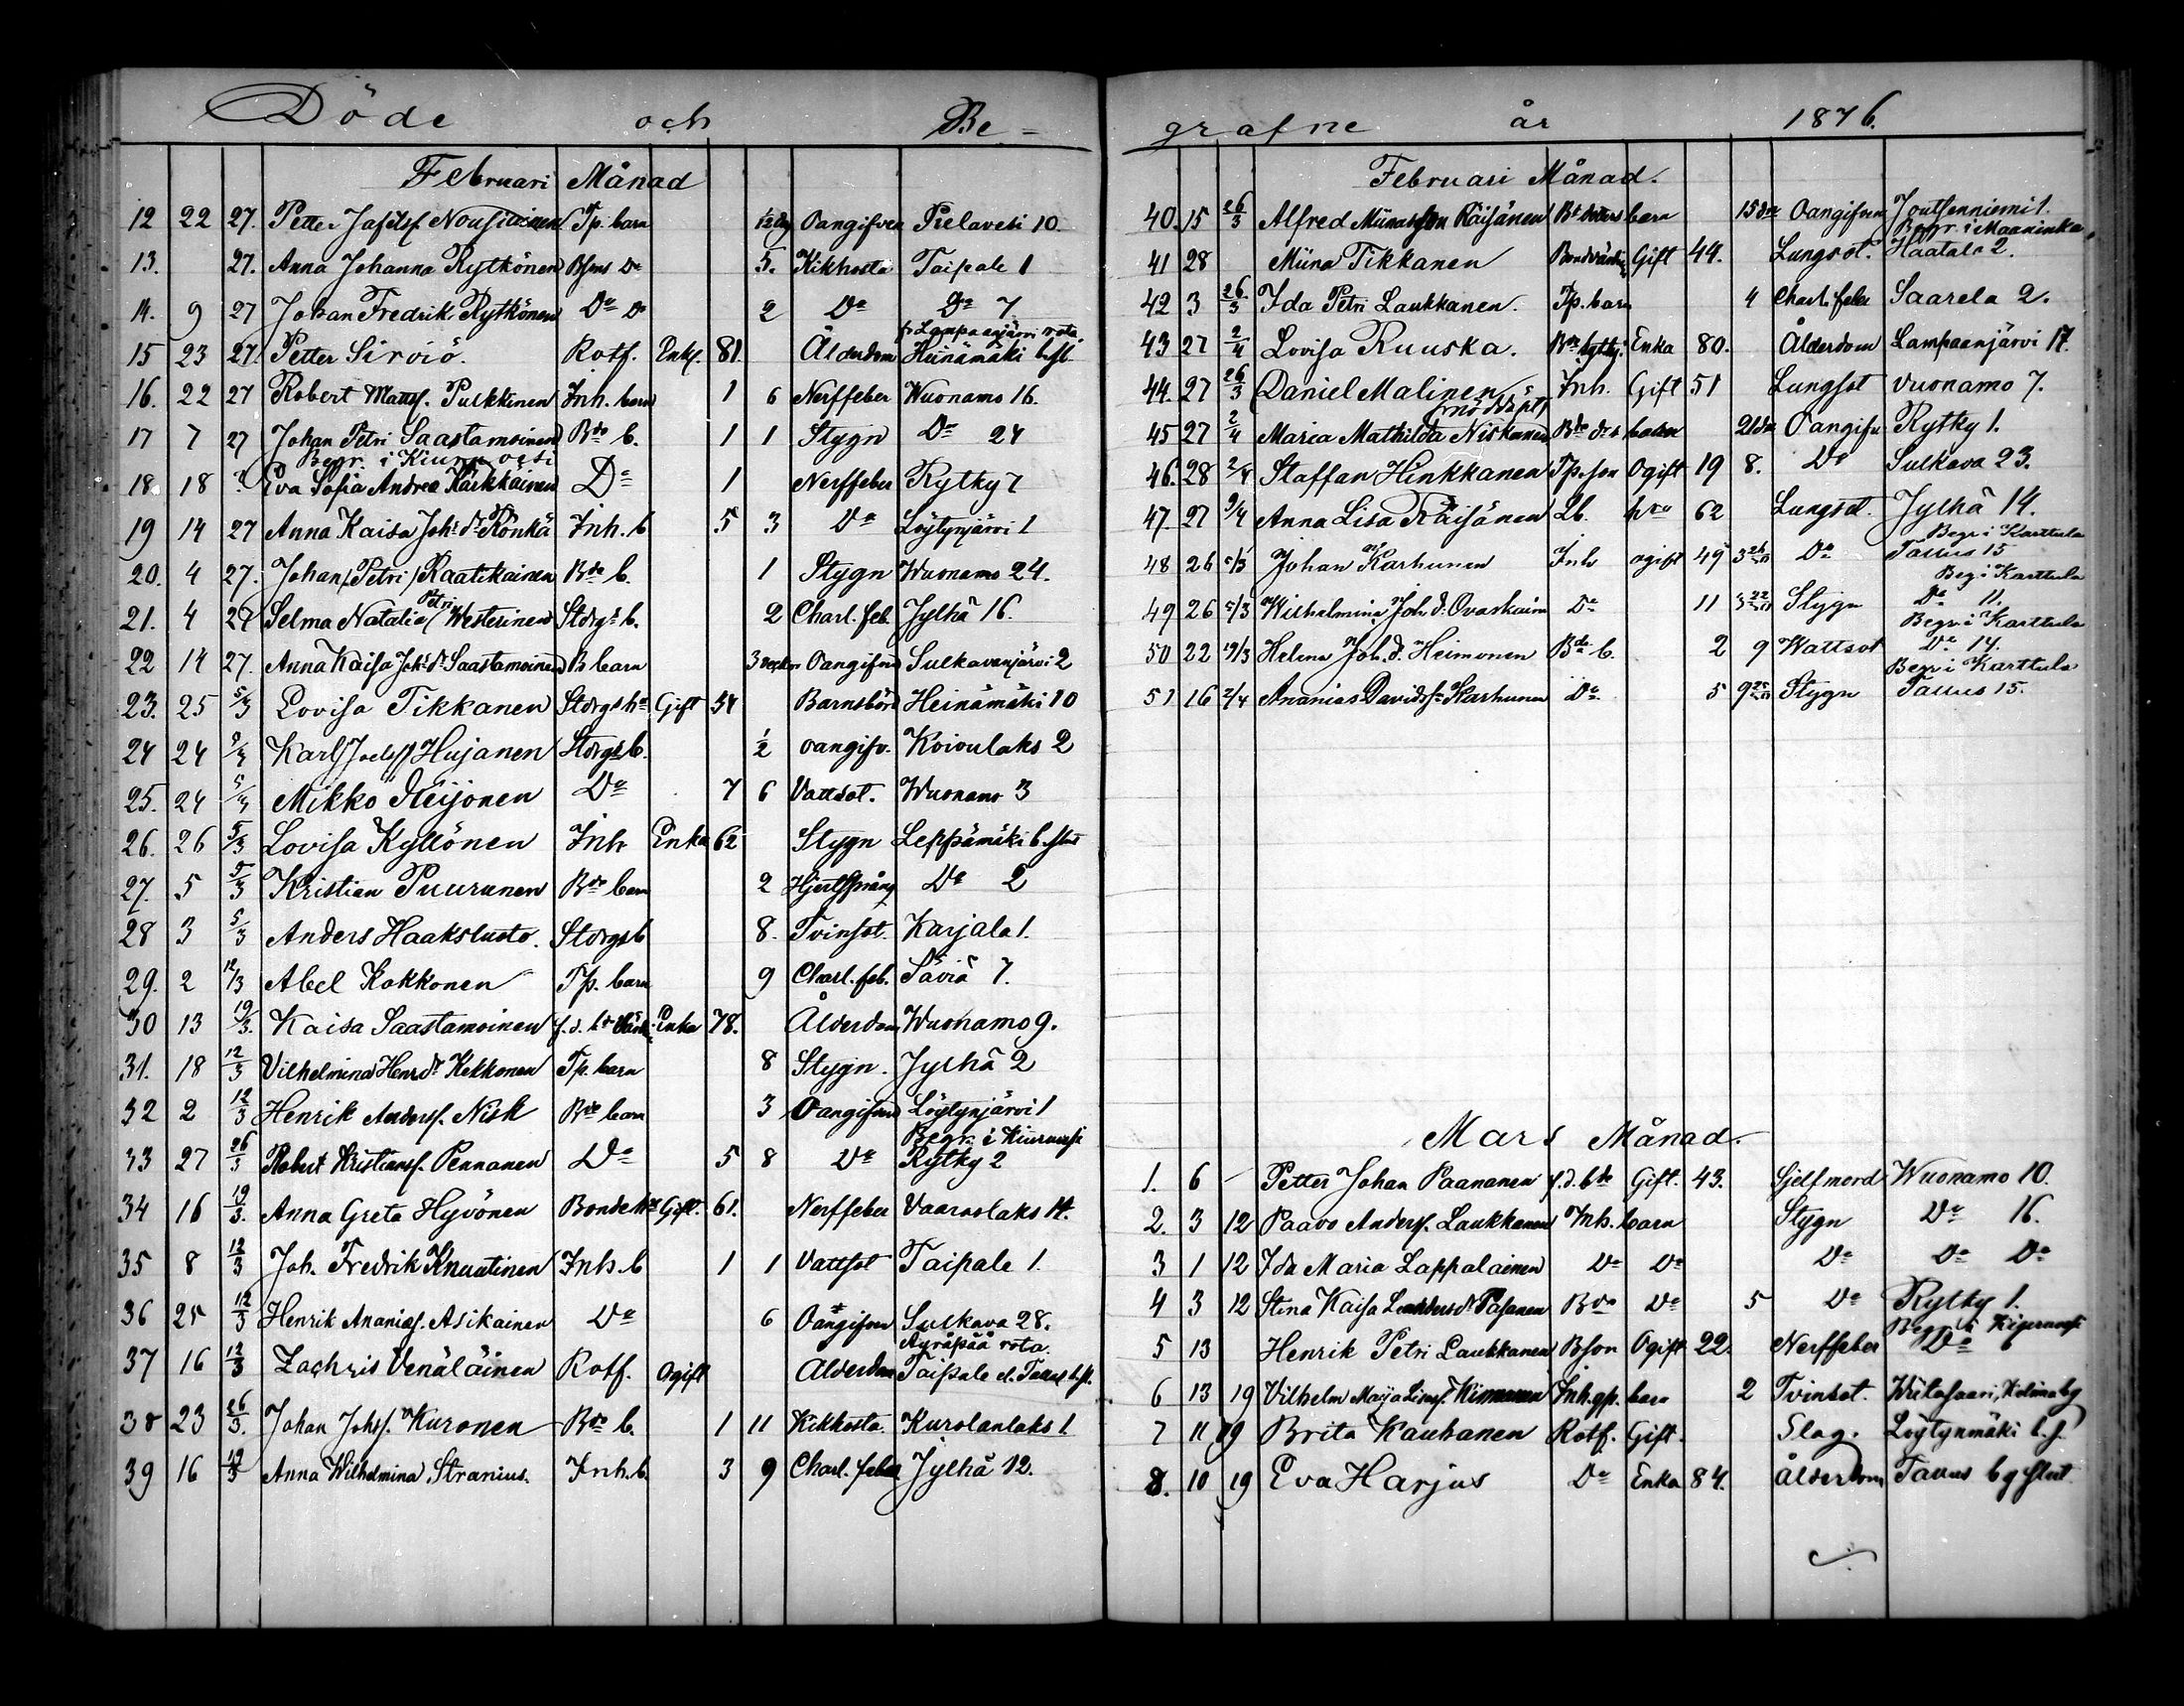 Döde och Be-
Februari Månad
12 22 27. Petter Nousiainen Tp. barn Oangifven Pielavesi 10
13. 27. Anna Johanna Rytkönen Dº 5. Kikhosta Taipale 1
14. 9 27 Johan Fredrik Rytkönen Dº Dº 2 Dº Dº 7
fr Lampaanjärvi rota
15 23 27. Petter Sirviö. Rotf. Enkl. 81 Ålderdom Heinämäki
16. 22 27 Robert Matts. Pulkkinen Inh. barn 1 6 Nerffeber Wuonamo 16.
17 7 27 Johan Petri Saastamoinen Bde b. 1 1 Stygn Dº 24
Begr. i Kiuruvesi
18. 18 ? Eva Sofia Andrea Kärkkäinen Dº 1 Nerffeber Rytky 7
19 14 27 Anna Kaisa Joh: dr Rönkä Inh. b 5 3 Dº Löytynjärvi 1
20. 4 27. Johan /Petri/ Raatikainen Bde b. 1 Stygn Wuonamo 24.
Petri
21. 4 27 Selma Natalia Westerinen Storgs b. 2 Charl. feb. Jylhä 16.
22 14 27. Anna Kaisa Joh: dr Saastamoinen B barn 3 veckor Oangifven Sulkavanjärvi 2
23. 25 5/3 Lovisa Tikkanen Storgs hu Gift 34 Barnsbörd Heinämäki 10
24 24 5/3 Karl Joels/ Hujanen Storgs b. 1/2 oangifv. Koivulaks 2
25. 24 5/3 Mikko Keijonen Dº 7 6 Vattsot. Wuonamo 3
26. 26 5/3 Lovisa Kyllönen Inh Enka 62 Stygn Leppämäki b.slut
27. 5 5/3 Kristian Puurunen Bde barn 2 Hjertsprång Dº 2
28 3 5/3 Anders Haaksluoto. Storgs b 8. Tvinsot. Karjala 1.
29. 2 12/3 Abel Kokkonen Tp. barn 9 Charl. feb. Säviä 7.
30 13 19/3. Kaisa Saastamoinen f. d. Enka 78. Ålderdom Wuonamo 9.
31. 18 12/3 Vilhelmina Henr. dr Kekkonen Tp. barn 8 Stygn. Jylhä 2
32 2 12/3 Henrik Anders. Nisk Bde barn 3 Oangifven Löytynjärvi 1
Begr. i Kiuruvesi
33 27 26/3 Robert Kristians. Pennanen Dº 5 8 Dº Rytky 2
34 16 19/3. Anna Greta Hyvönen Bondehu Gift. 61. Nerffeber Vaaraslaks 14.
35 8 12/3 Joh. Fredrik Knuutinen Inh. b 1 1 Vattsot Taipale 1.
36 25 12/3 Henrik Ananias. Asikainen Dº 6 Oangifven Sulkava 28.
Äyräpää rota.
37 16 12/3 Zachris Venäläinen Rotf. Ogift Ålderdom Taipale
38 23 26/3. Johan Johs. Kuronen Bde b. 1 11 Kikhosta. Kurolanlaks 1
39 16 19/3 Anna Wilhelmina Stranius. Inh. b. 3 9 Charl. feber Jylhä 12.
grafne år 1876.
Februari Månad.
40. 15 26/3 Alfred Miinasson Räisänen barn 15 dar Oangifven Joutsenniemi 1.
Begr. i Maaninka
41 28 Miina Tikkanen Gift 44. Lungsot. Haatala 2.
42 3 26/3 Ida Petri Laukkanen. Tp. barn 4 Charl. feber Saarela 2.
43 27 2/4 Lovisa Ruuska. Enka 80. Ålderdom Lampaanjärvi 17.
44. 27 26/3 Daniel Malinen Inh. Gift 51 Lungsot Vuonamo 7.
(nöddöpt)
45 27 2/4 Maria Mathilda Niskanen Bde 21 dar Oangifv Rytky 1.
46. 28 2/4 Staffan Hinkkanen Tp. son Ogift 19 8. Dº Sulkava 23.
47. 27 9/4 Anna Lisa Räisänen Lb. hru 62 Lungsot. Jylhä 14.
Begr i Karttula
48 26 5/3 Johan Karhunen Inh ogift 49 Dº Tallus 15
Beg i Karttula
49 26 5/3 Wilhelmina Joh. d. Ovaskain Dº 11 Stygn Dº 11.
Begr i Karttula
50 22 19/3 Helena Joh. d. Heimonen Bde b. 2 9 Wattsot Dº 14.
Begr i Karttula
51 16 2/4 Ananias Davids Karhunen Dº 5 Stygn Tallus 15.
Mars Månad.
1. 6 - Petter Johan Paananen f.d. bde Gift. 43. Sjelfmord Wuonamo 10.
2. 3 12 Paavo Anders. Laukkanen Inh. barn Stygn Dº 16.
3 1 12 Ida Maria Lappalainen Dº Dº Dº Dº Dº
4 3 12 Stina Kaisa Pasanen Bde Dº 5 Dº Rytky 1.
5 13 Henrik Petri Laukkanen Bson Ogift 22. Nerffeber Dº 6
6 13 19 Vilhelm Maija Liisas. Inh. barn 2 Tvinsot.
7 11 19 Brita Kauhanen Rotf. Gift. Slag. Löytynmäki b. s.
8. 10 19 Eva Harjus Dº Enka 84. Ålderdom Tallus by slut